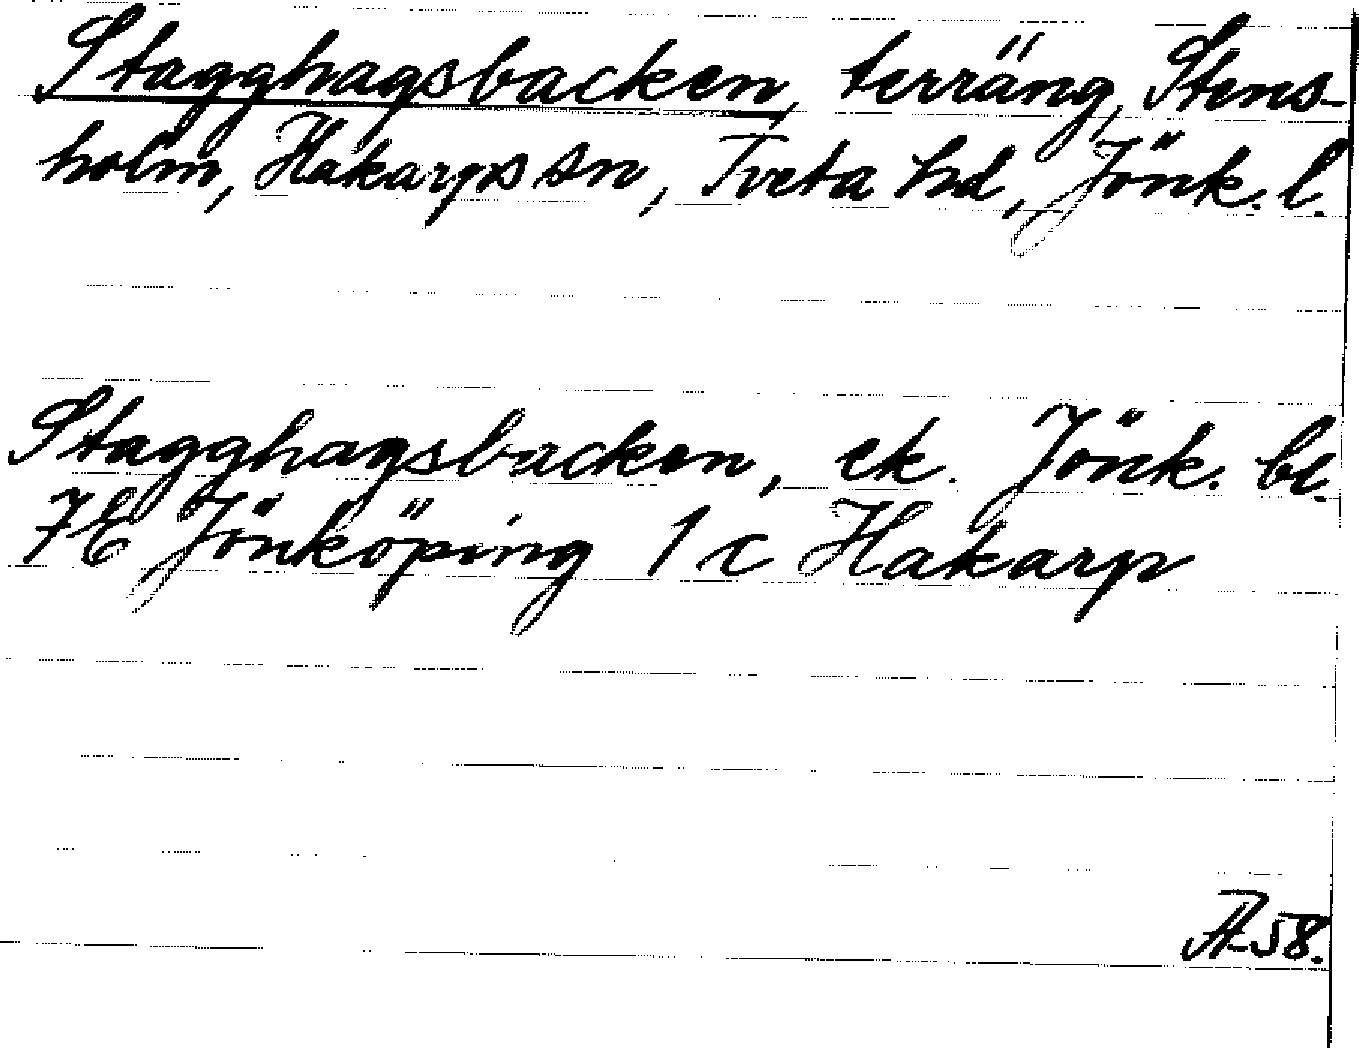 Stagghagsbacken, terräng, Stens-
holm, Hakarps sn, Tveta hd, Jönk. l.
Stagghagsbacken, ek. Jönk. bl.
7E Jönköping 1 c Hakarp
58.